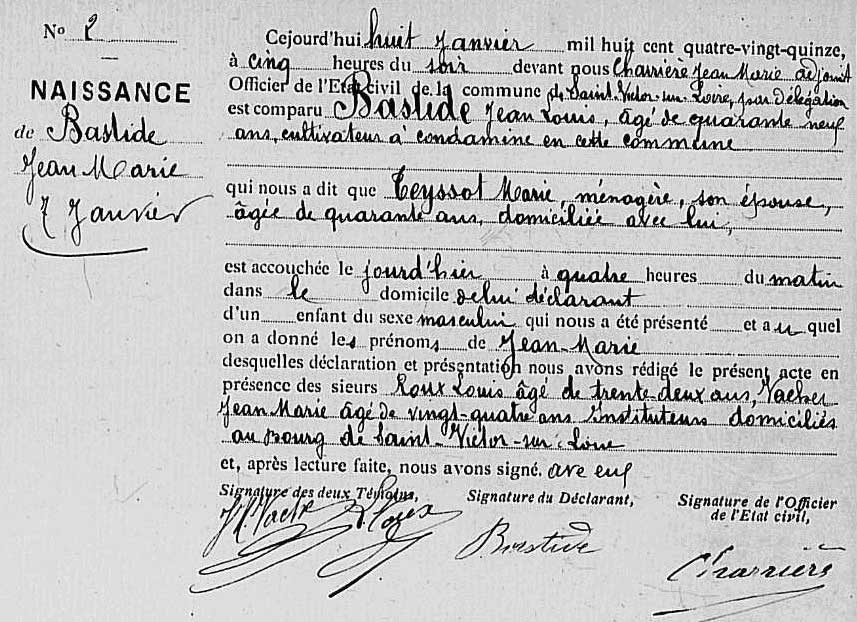 No 2
NAISSANCE
de Bastide
Jean Marie
7 Janvier
Cejourd'hui huit Janvier mil huit cent quatre-vingt-quinze,
à cinq heures du soir devant nous Charrière Jean Marie adjoint
Officier de l'Etat civil de la commune de Saint-Victor-sur-Loire, par délégation
est comparu Bastide Jean Louis, âgé de quarante neuf
ans, cultivateur à Condamine en cette commune
qui nous a dit que Teyssot Marie, ménagère, son épouse,
âgée de quarante ans, domiciliée avec lui,
est accouchée le jourd'hier à quatre heures du matin
dans le domicile de lui déclarant
d'un enfant du sexe masculin qui nous a été présenté et au quel
on a donné les prénoms de Jean-Marie
desquelles déclaration et présentation nous avons rédigé le présent acte en
présence des sieurs Roux Louis âgé de trente-deux ans, Vacher
Jean Marie âgé de vingt-quatre ans Instituteurs domiciliés
au bourg de Saint-Victor-sur-Loire
et, après lecture faite, nous avons signé. avec eux
Signature des deux Témoins, Signature du Déclarant, Signature de l'Officier
de l'Etat civil,
Bastide
Charrière